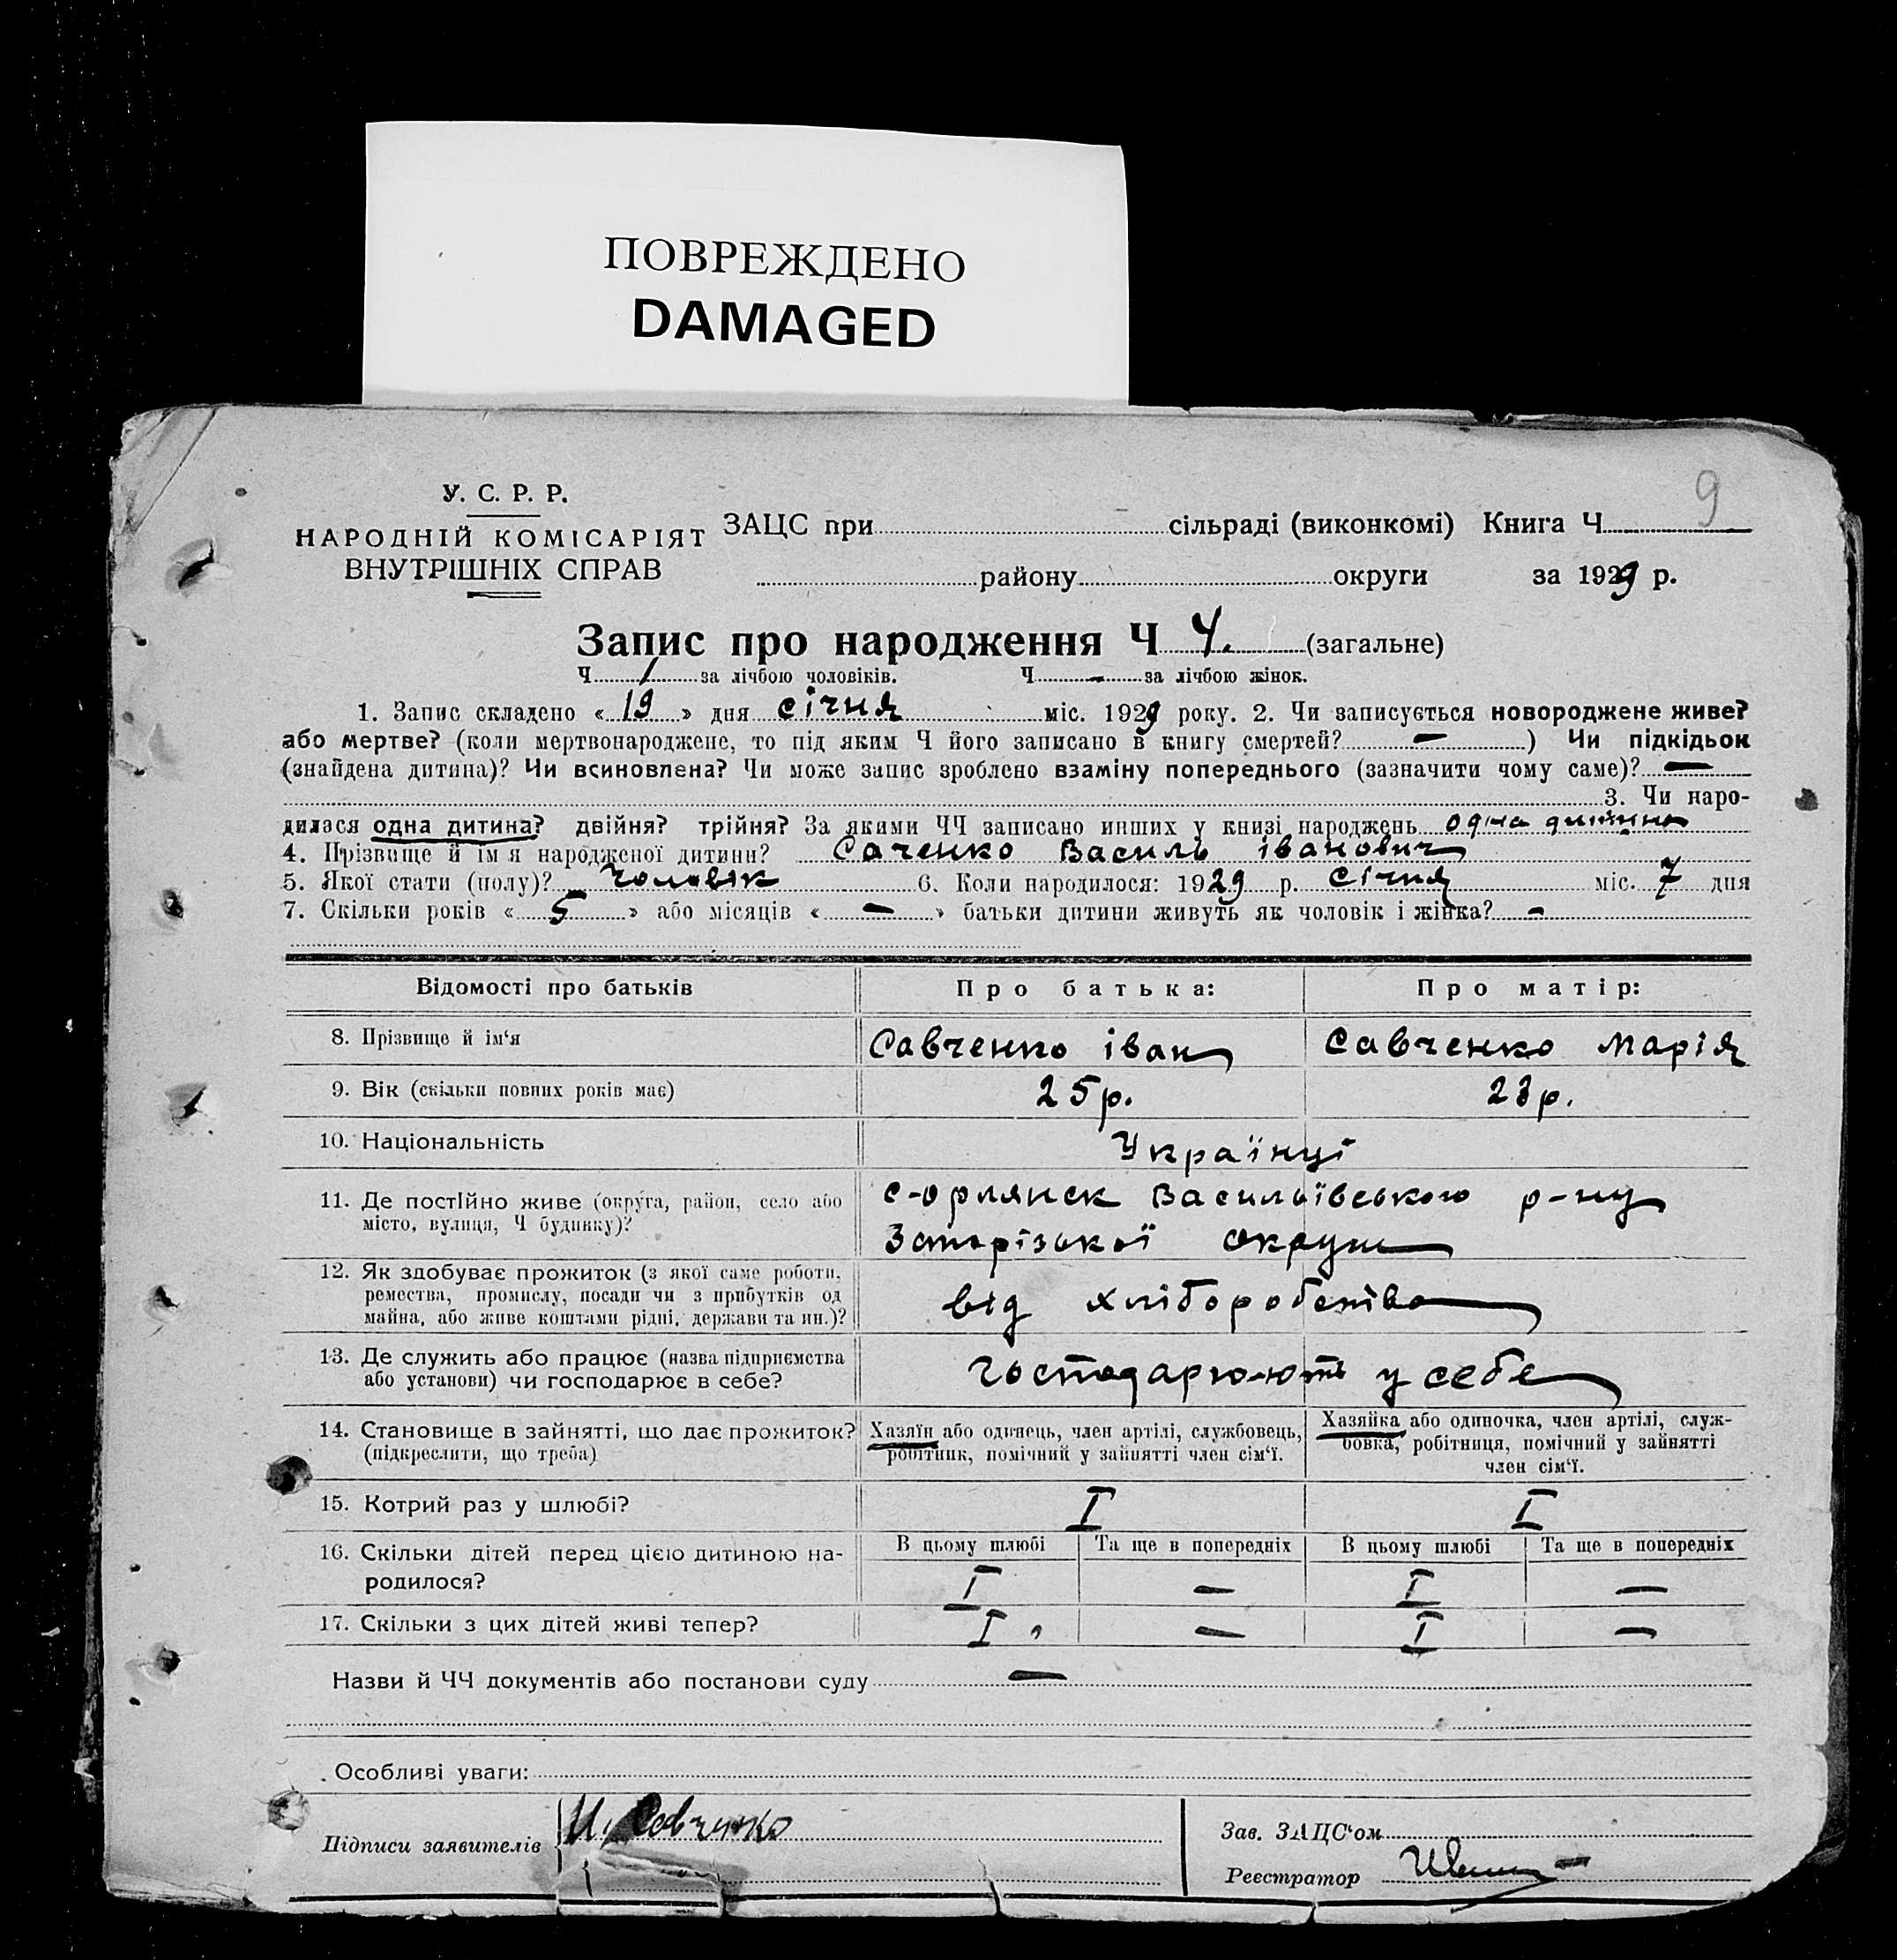 ПОВРЕЖДЕНО
DAMAGED
9
У. С. Р. Р.
НАРОДНІЙ КОМІСАРІЯТ
ВНУТРІШНІХ СПРАВ
ЗАЦС при сільраді (виконкомі) Книга Ч
району округи за 1929 р.
Запис про народження Ч 4. (загальне)
Ч 1 за лічбою чоловіків. Ч — за лічбою жінок.
1. Запис складено « 19 » дня січня міс. 1929 року. 2. Чи записується новороджене живе?
або мертве? (коли мертвонароджене, то під яким Ч його записано в книгу смертей? — ) Чи підкідьок
(знайдена дитина)? Чи всиновлена? Чи може запис зроблено взаміну попереднього (зазначити чому саме)? —
3. Чи наро-
дилася одна дитина? двійня? трійня? За якими ЧЧ записано инших у книзі народжень одна дитина
4. Прізвище й ім'я народженої дитини? Саченко Василь іванович
5. Якої стати (полу)? чоловік 6. Коли народилося: 1929 р. січня міс. 7 дня
7. Скільки років « 5 » або місяців « — » батьки дитини живуть як чоловік і жінка? -
Відомості про батьків Про батька: Про матір:
8. Прізвище й ім'я Савченко іван Савченко марія
9. Вік (скільки повних років має) 25 р. 23 р.
10. Національність Українці
11. Де постійно живе (округа, район, село або
місто, вулиця, Ч будинку)?
с-орлянск Васильівського р-ну
Запорізької округи
12. Як здобуває прожиток (з якої саме роботи,
ремества, промислу, посади чи з прибутків од
майна, або живе коштами рідні, держави та ин.)?
від хліборобства
13. Де служить або працює (назва підприємства
або установи) чи господарює в себе?
господарюють у себе
14. Становище в зайнятті, що дає прожиток?
(підкреслити, що треба)
Хазяїн або одинець, член артілі, службовець,
робітник, помічний у зайнятті член сім'ї.
Хазяйка або одиночка, член артілі, служ-
бовка, робітниця, помічний у зайнятті
член сім'ї.
15. Котрий раз у шлюбі? I I
16. Скільки дітей перед цією дитиною на-
родилося?
В цьому шлюбі Та ще в попередніх В цьому шлюбі Та ще в попередніх
I — I —
17. Скільки з цих дітей живі тепер? I — I —
Назви й ЧЧ документів або постанови суду —
Особливі уваги:
Підписи заявителів И. Савченко
Зав. ЗАЦС'ом
Реєстратор